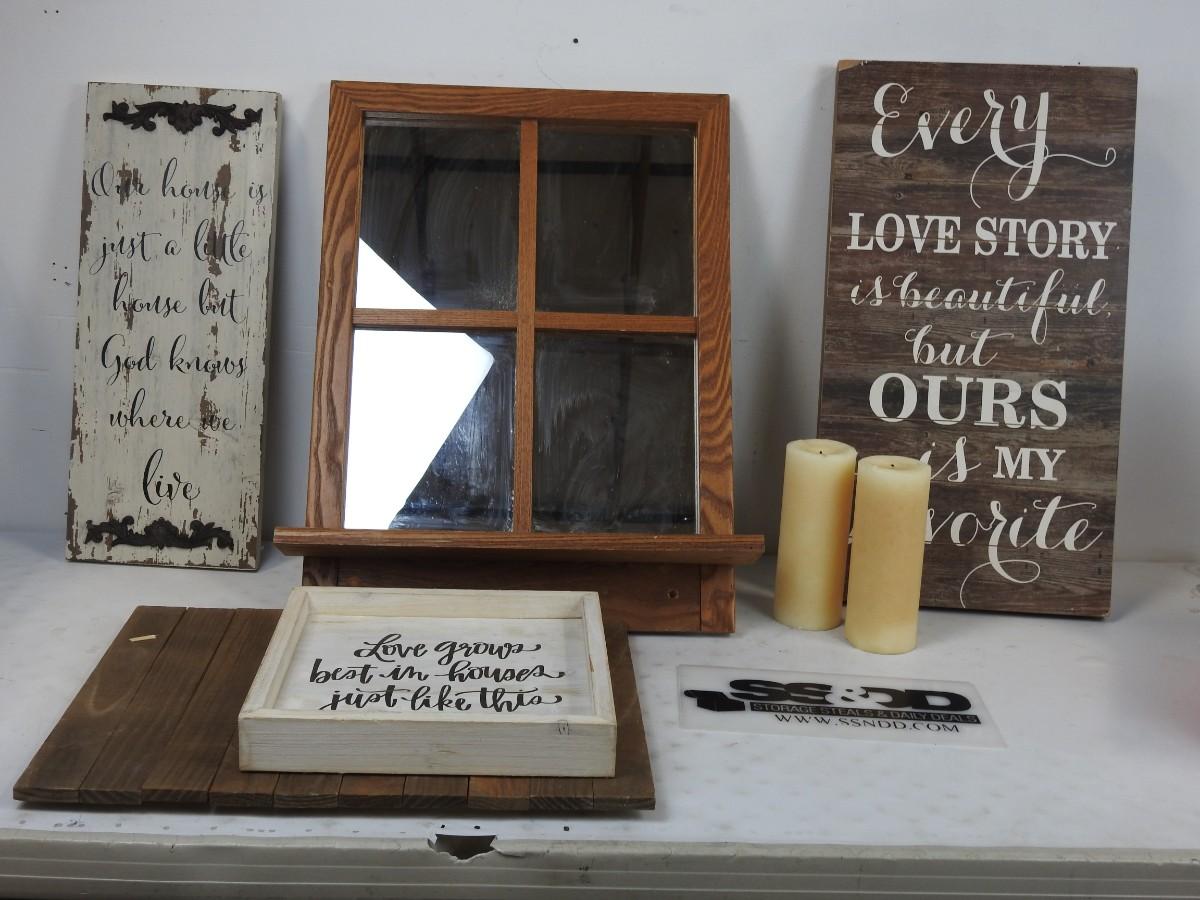 Our house is
just a little
house but
God knows
where we
live
Every
LOVE STORY
is beautiful,
but
OURS
is MY
vorite
Love grows
best in houses
just like this
SS&DD
STORAGE STEALS & DAILY DEALS
WWW.SSNDD.COM